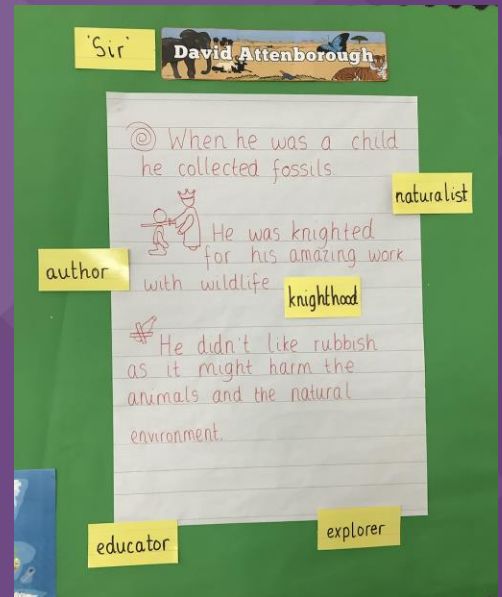 'Sir'
David Attenborough
When he was a child
he collected fossils
naturalist
He was knighted
for his amazing work
author
with wildlife
knighthood
He didn't like rubbish
as it might harm the
animals and the natural
environment.
educator
explorer